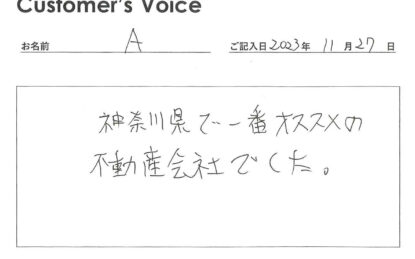 Customer's Voice
お名前 A ご記入日 2023年 11月27日
神奈川県で一番オススメの
不動産会社でした。